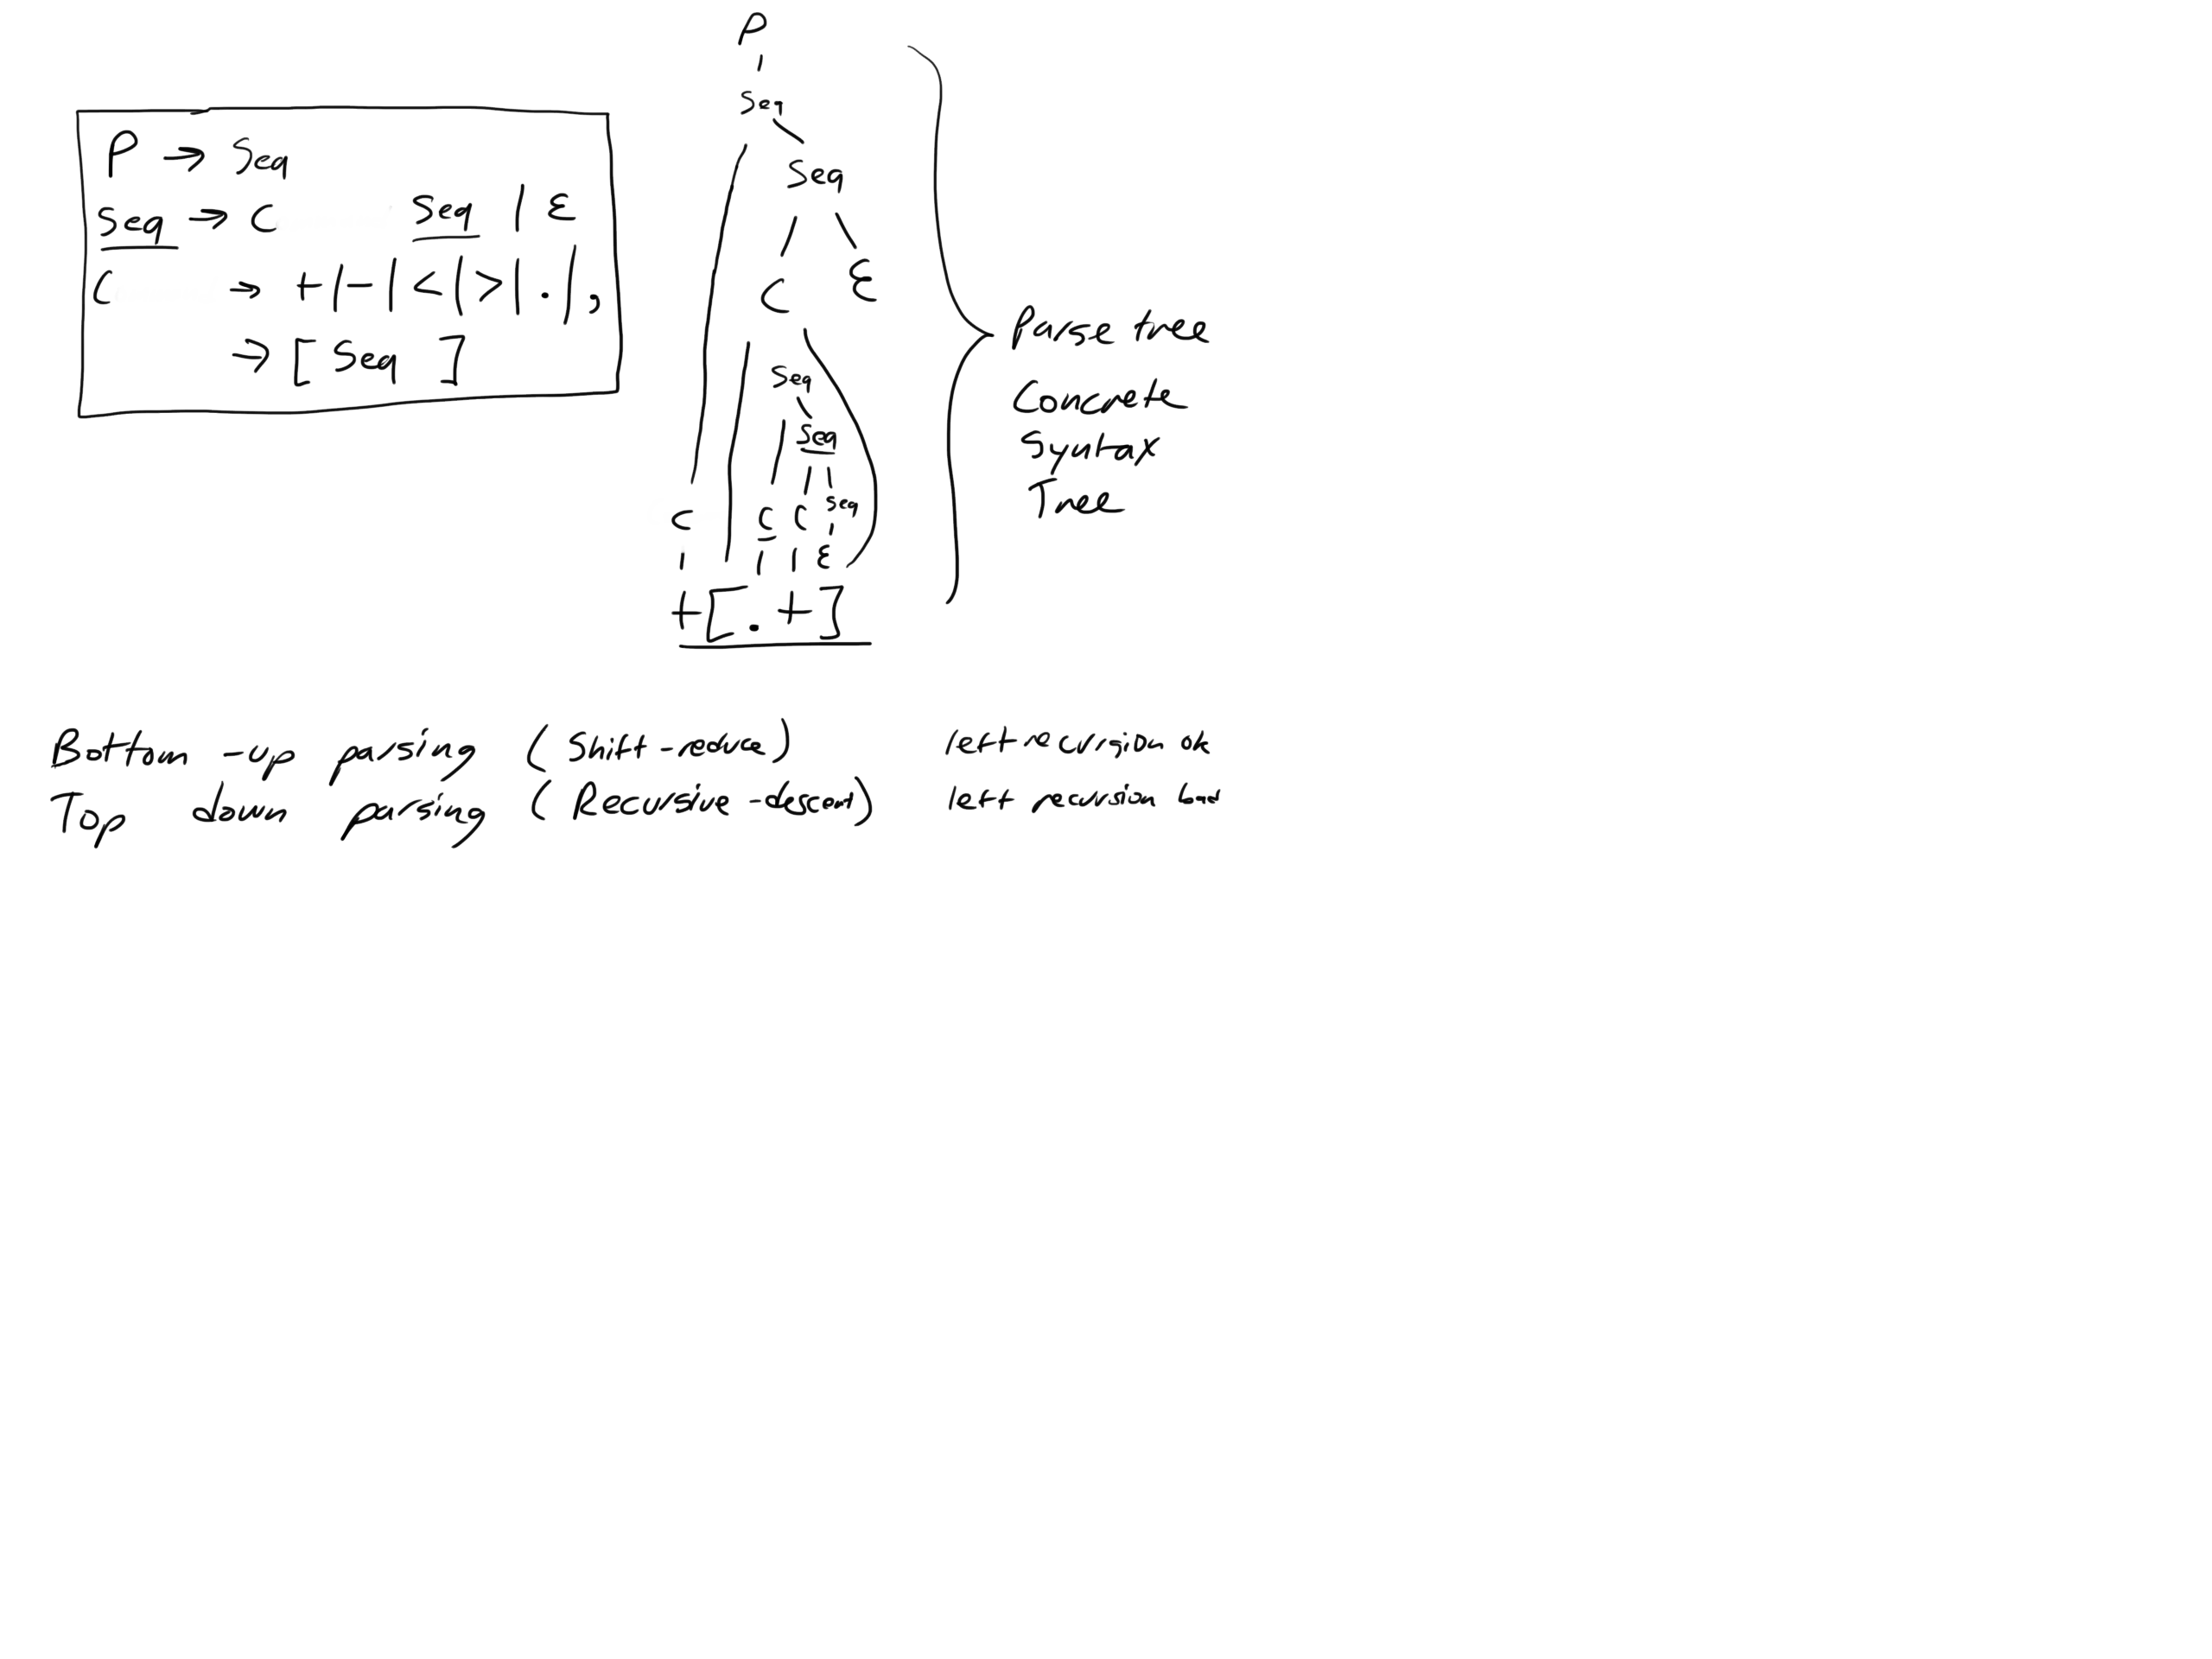 P → Seq
Seq → C Seq | ε
C → + | - | < | > | . | ,
→ [ Seq ]
P
Seq
Seq
C ε
Seq
Seq
C C C Seq
ε
+[.+]
Parse tree
Concrete
Syntax
Tree
Bottom-up parsing (Shift-reduce) left recursion ok
Top down parsing (Recursive-descent) left recursion bad